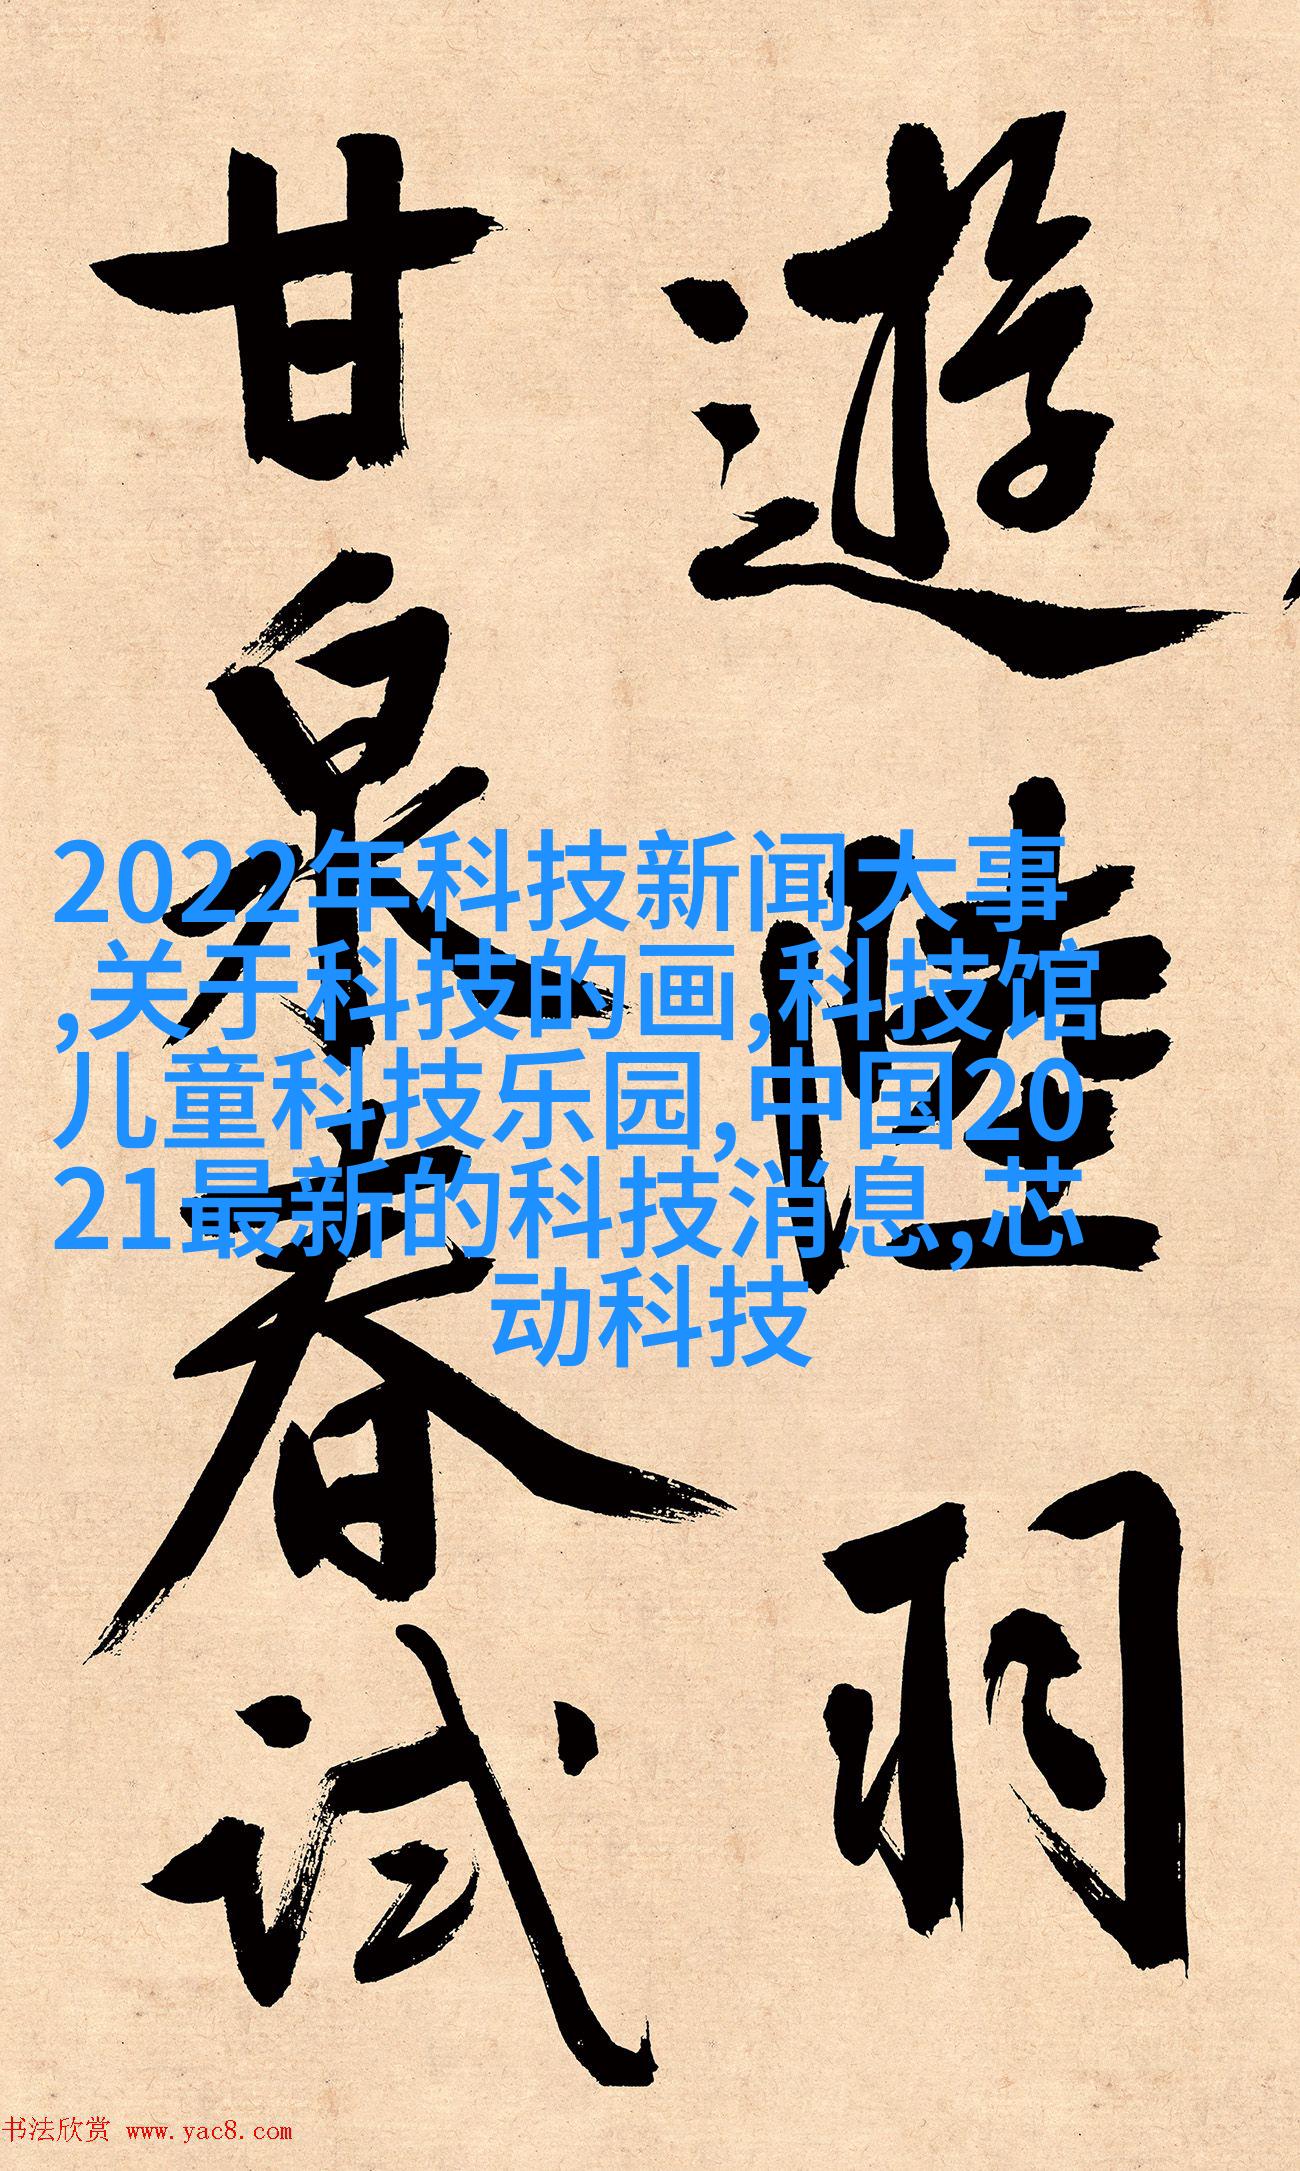 遊陸羽
甘泉春試
2022年科技新闻大事
,关于科技的画,科技馆
儿童科技乐园,中国20
21最新的科技消息,芯
动科技
书法欣赏 www.yac8.com